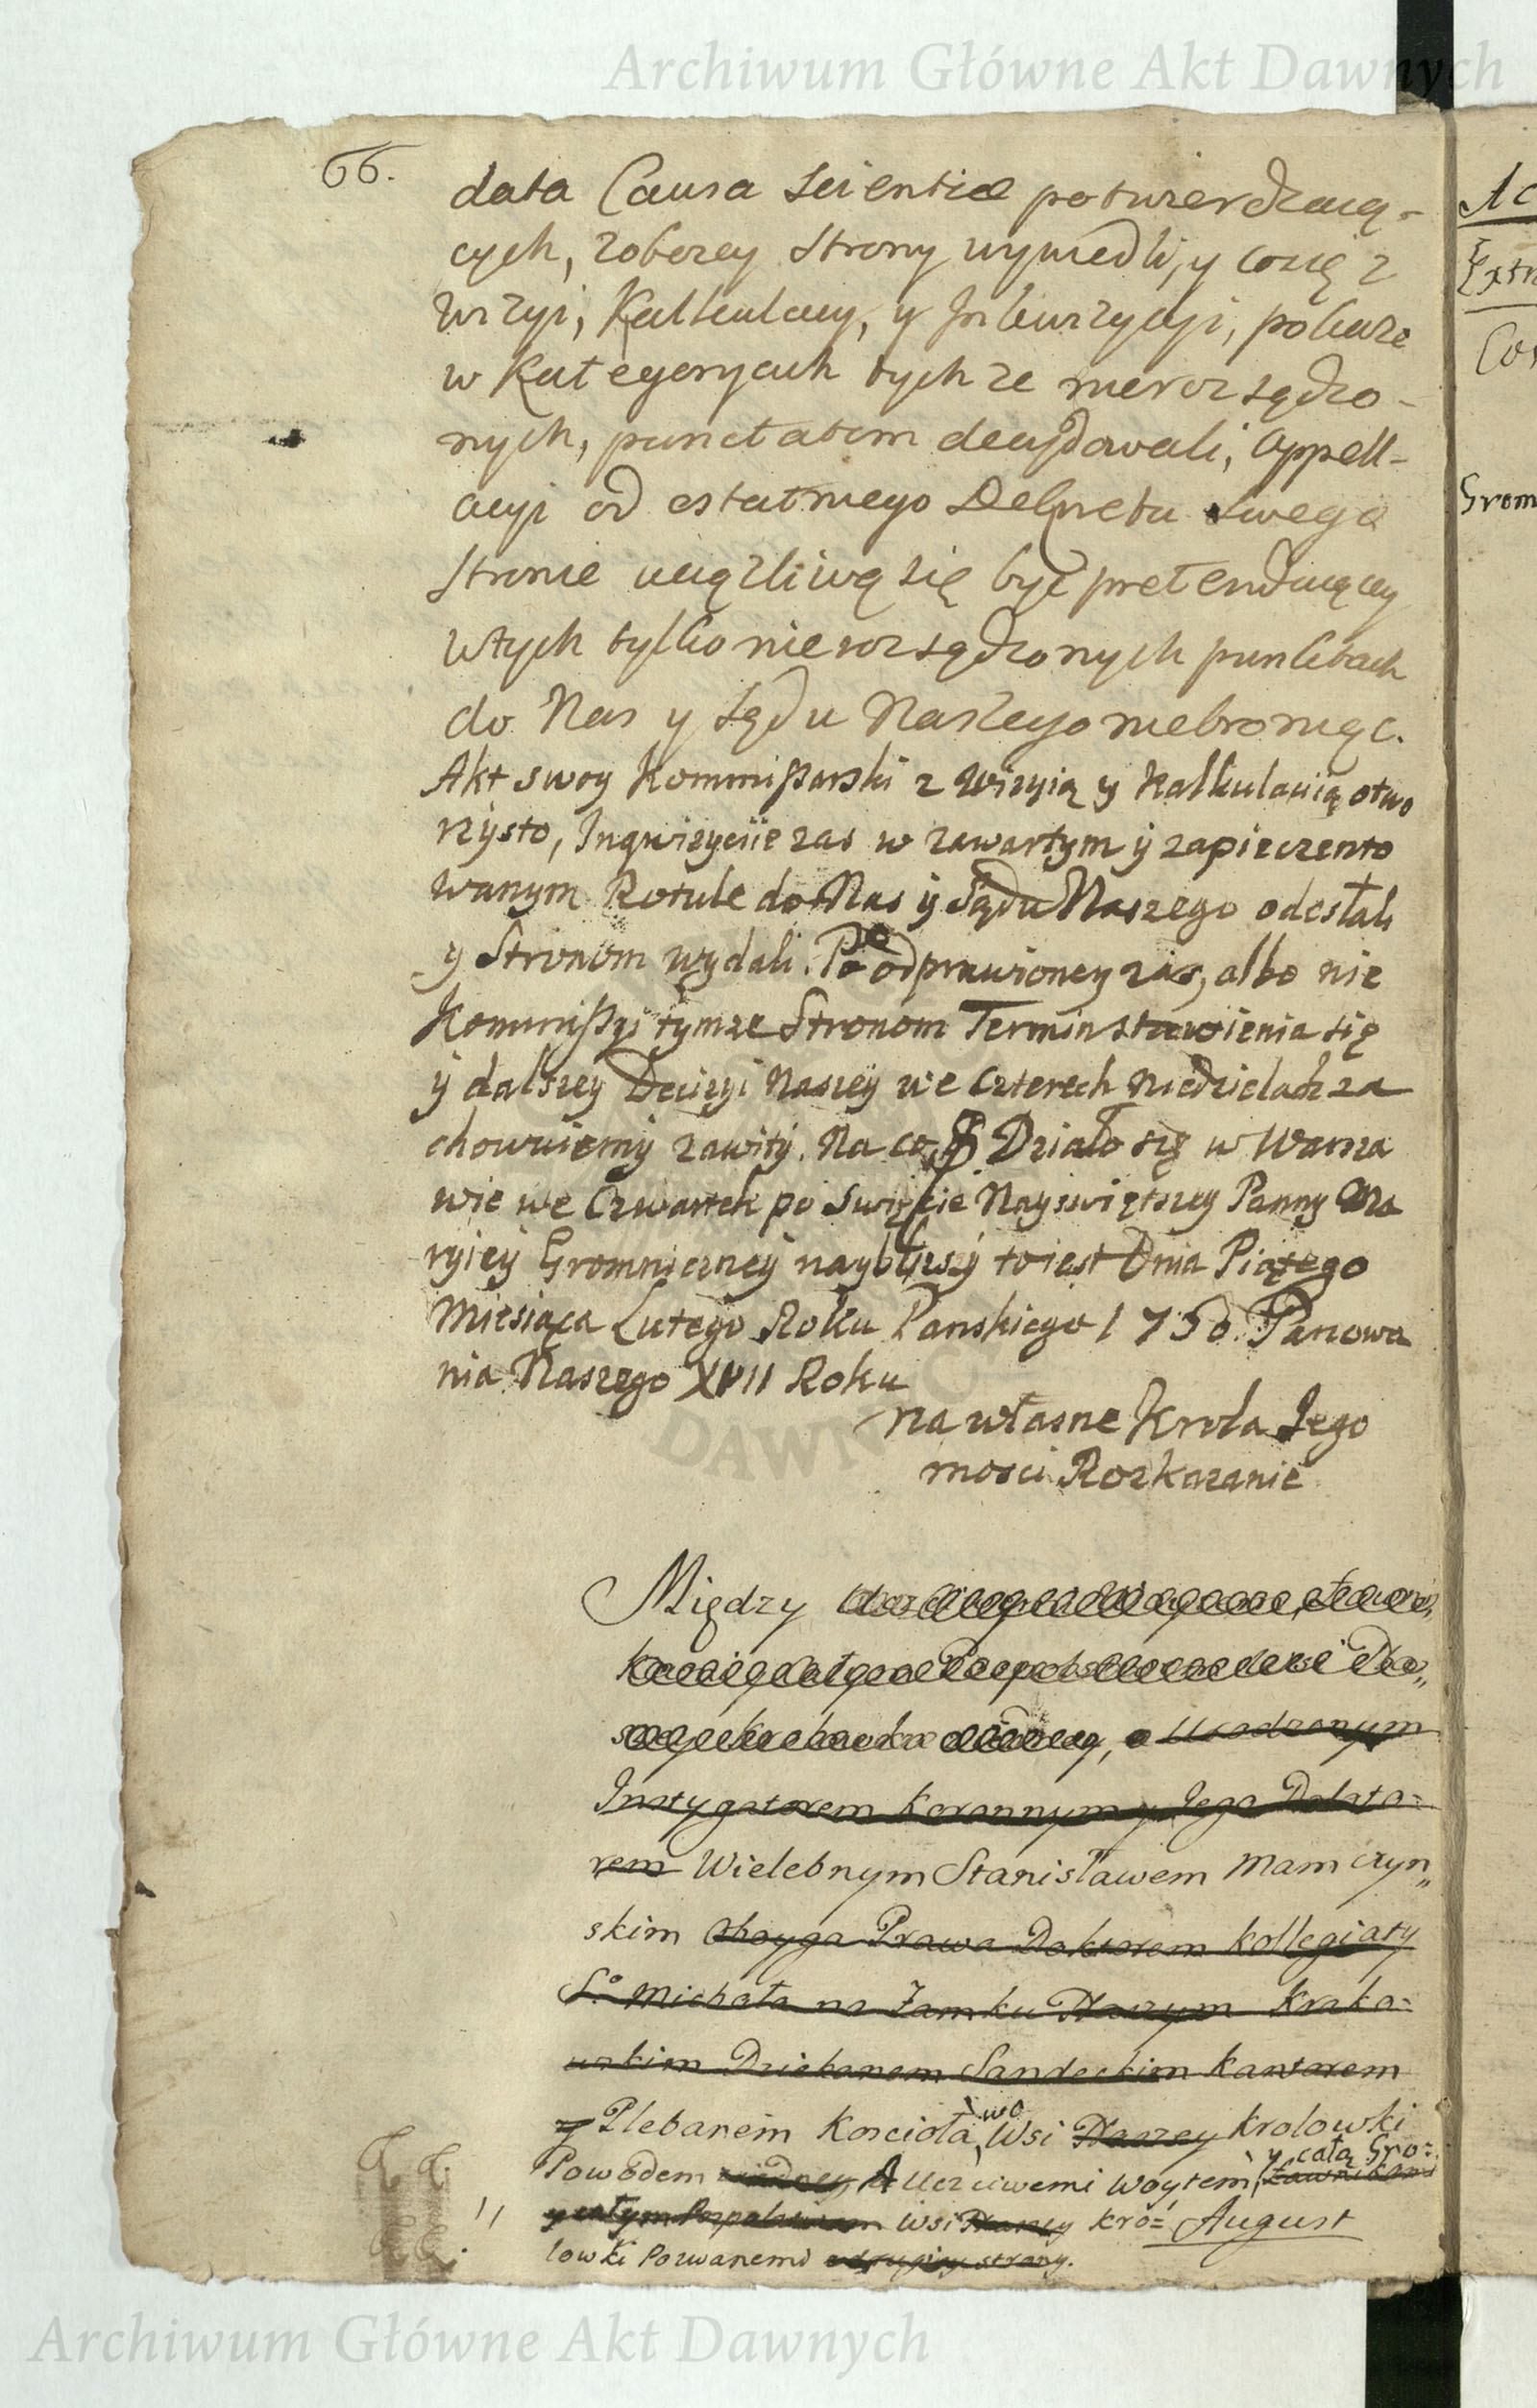 Archiwum Główne Akt Dawnych
66.
data Causa Scientiæ potwierdzaią-
cych, z oboiey Strony wywiedli, y co się z
Wizyi, Kalkulacyi, y Inkwizycyi, pokaże
w Kategoryach tychże nierozsądzo-
nych, punctatim decydowali, Appell-
acyi od ostatniego Dekretu swego
Stronie uciążliwą się być pretenduiącey
w tych tylko nierozsądzonych punktach
do Nas y Sądu Naszego niebroniąc.
Akt swoy Kommißarski z Wizyią y Kalkulacią otwo
rzysto, Inqwizycije zas w zawartym ÿ zapieczento
wanym Rotule do Nas ÿ Sądu Naszego odesłali
y Stronom wydali. Po odprawioney zas, albo nie
Kommißyi tymze Stronom Termin stawienia się
ÿ dalszey Decizyi Naszey we Czterech Niedzielach za
chowuiemy zawitÿ. Na co Działo się w Warsza
wie we Czwartek po Swięcie Nayswiętszey Panny Ma
ryiey Gromniczney naybliższy to iest Dnia Piątego
Miesiąca Lutego Roku Panskiego 1750. Panowa
nia Naszego XVII Roku
na własne Krola Jego
mosci Rozkazanie
Między
a Urodzonym
Instygatorem Koronnym y Jego Delato=
rem Wielebnym Stanisławem Mamczyn„
skim oboyga Prawa Doktorem Kollegiaty
S.° Michała na Zamku Naszym Krako=
wskim Dziekanem Sandeckim Kantorem
y Plebanem Koscioła, wo Wsi Naszey Krolowki
Powodem z iedney A Uczciwemi Woytem, y całą Gro= Ławnikami
y całym Pospolstwem Wsi Naszey Kro= August
lowki Pozwanemi z drugiey strony.
Ac
Extr
Cos
Grom
DAWN
Archiwum Główne Akt Dawnych